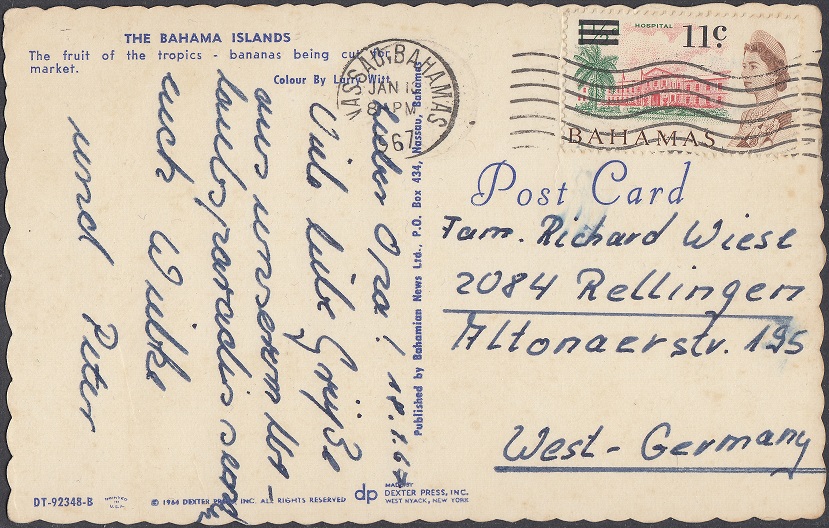 THE BAHAMA ISLANDS
The fruit of the tropics - bananas being cut for
market.
Colour By Larry Witt
NASSAU, BAHAMAS
JAN 18
8 PM
1967
HOSPITAL
11c
BAHAMAS
Post Card
Fam. Richard Wiese
2084 Rellingen
Altonaerstr. 195
West-Germany
18.1.67
Viele liebe Grüße
aus unserem Ur-
laubsparadies senden
euch Wiebke
und Peter
Published by Bahamian News Ltd., P.O. Box 434, Nassau, Bahamas
DT-92348-B
PRINTED
IN
U.S.A.
© 1964 DEXTER PRESS, INC. ALL RIGHTS RESERVED
dp
MADE BY
DEXTER PRESS, INC.
WEST NYACK, NEW YORK